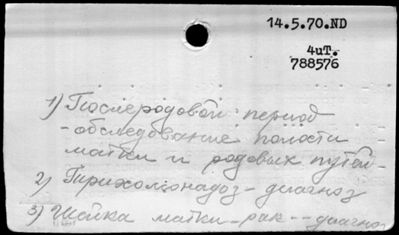 14.5.70.ND
4uT.
788576
1) Послеродовой период
- обследование полости
матки и родовых путей -
2) Трихомонадоз - диагноз
3) Шейка матки - рак -- диагноз